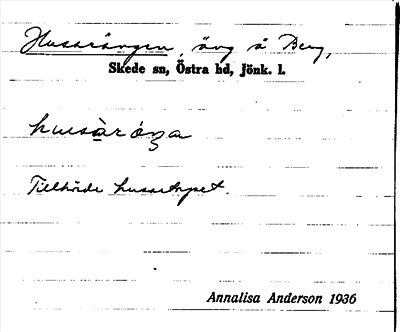 Husarängen, äng å Berg,
Skede sn, Östra hd, Jönk. l.
Tillhörde husartorpet.
Annalisa Anderson 1936